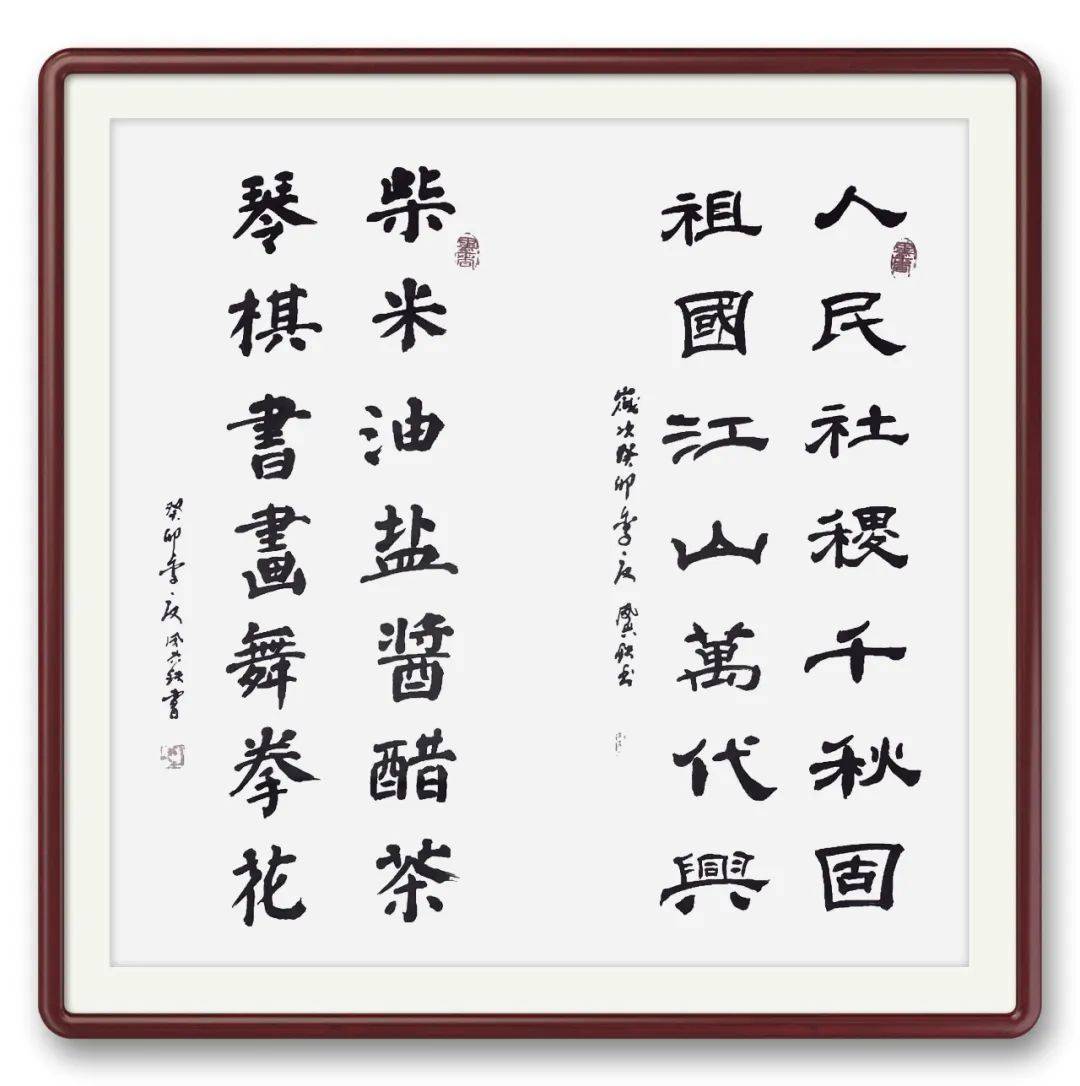 人民社稷千秋固
祖國江山萬代興
歲次癸卯季夏
柴米油盐醬醋茶
琴棋書畫舞拳花
癸卯季夏 書